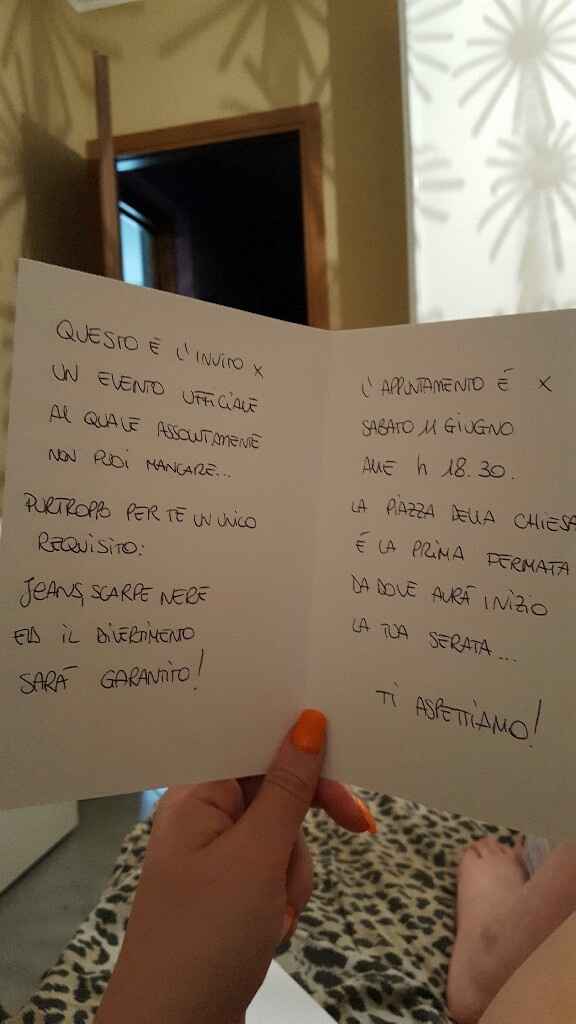 QUESTO È L'INVITO X
UN EVENTO UFFICIALE
AL QUALE ASSOLUTAMENTE
NON PUOI MANCARE...
PURTROPPO PER TE UN UNICO
REQUISITO:
JEANS, SCARPE NERE
ED IL DIVERTIMENTO
SARÀ GARANTITO!
L'APPUNTAMENTO È X
SABATO 11 GIUGNO
ALLE h 18.30.
LA PIAZZA DELLA CHIESA
È LA PRIMA FERMATA
DA DOVE AURÀ INIZIO
LA TUA SERATA...
TI ASPETTIAMO!